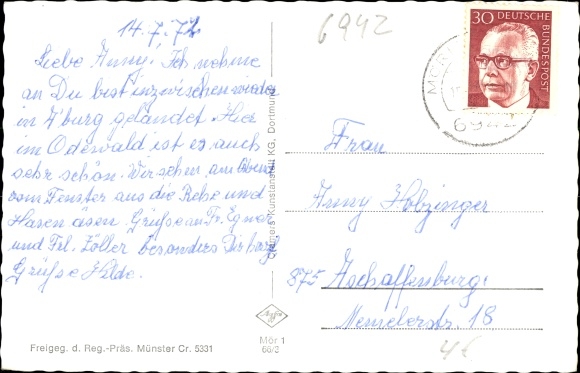 14.7.72
Liebe Anny! Ich nehme
an Du bist inzwischen wieder
in A'burg gelandet. Hier
im Odenwald ist es auch
sehr schön. Wir sehen am Abend
vom Fenster aus die Rehe und
Hasen äsen. Grüße an Fr. Egner
und Frl. Zöller besonders Dir herzl.
Grüße Hilde.
Freigeg. d. Reg.-Präs. Münster Cr. 5331
Cramers Kunstanstalt KG, Dortmund
Mör 1
66/3
6942
30 DEUTSCHE
BUNDESPOST
6942
Frau
Anny Holzinger
875 Aschaffenburg
Memelerstr. 18
4€